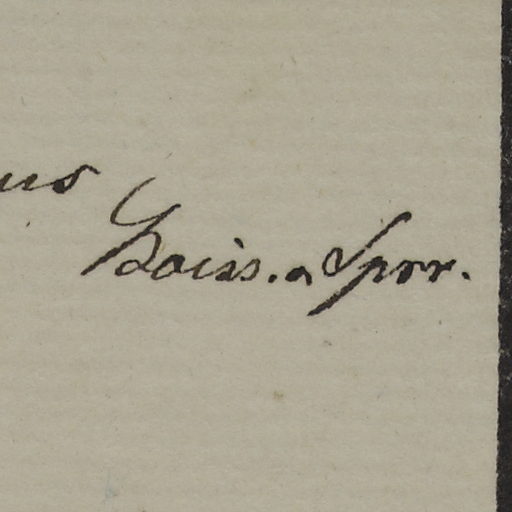 us
Boiss. a Sprr.